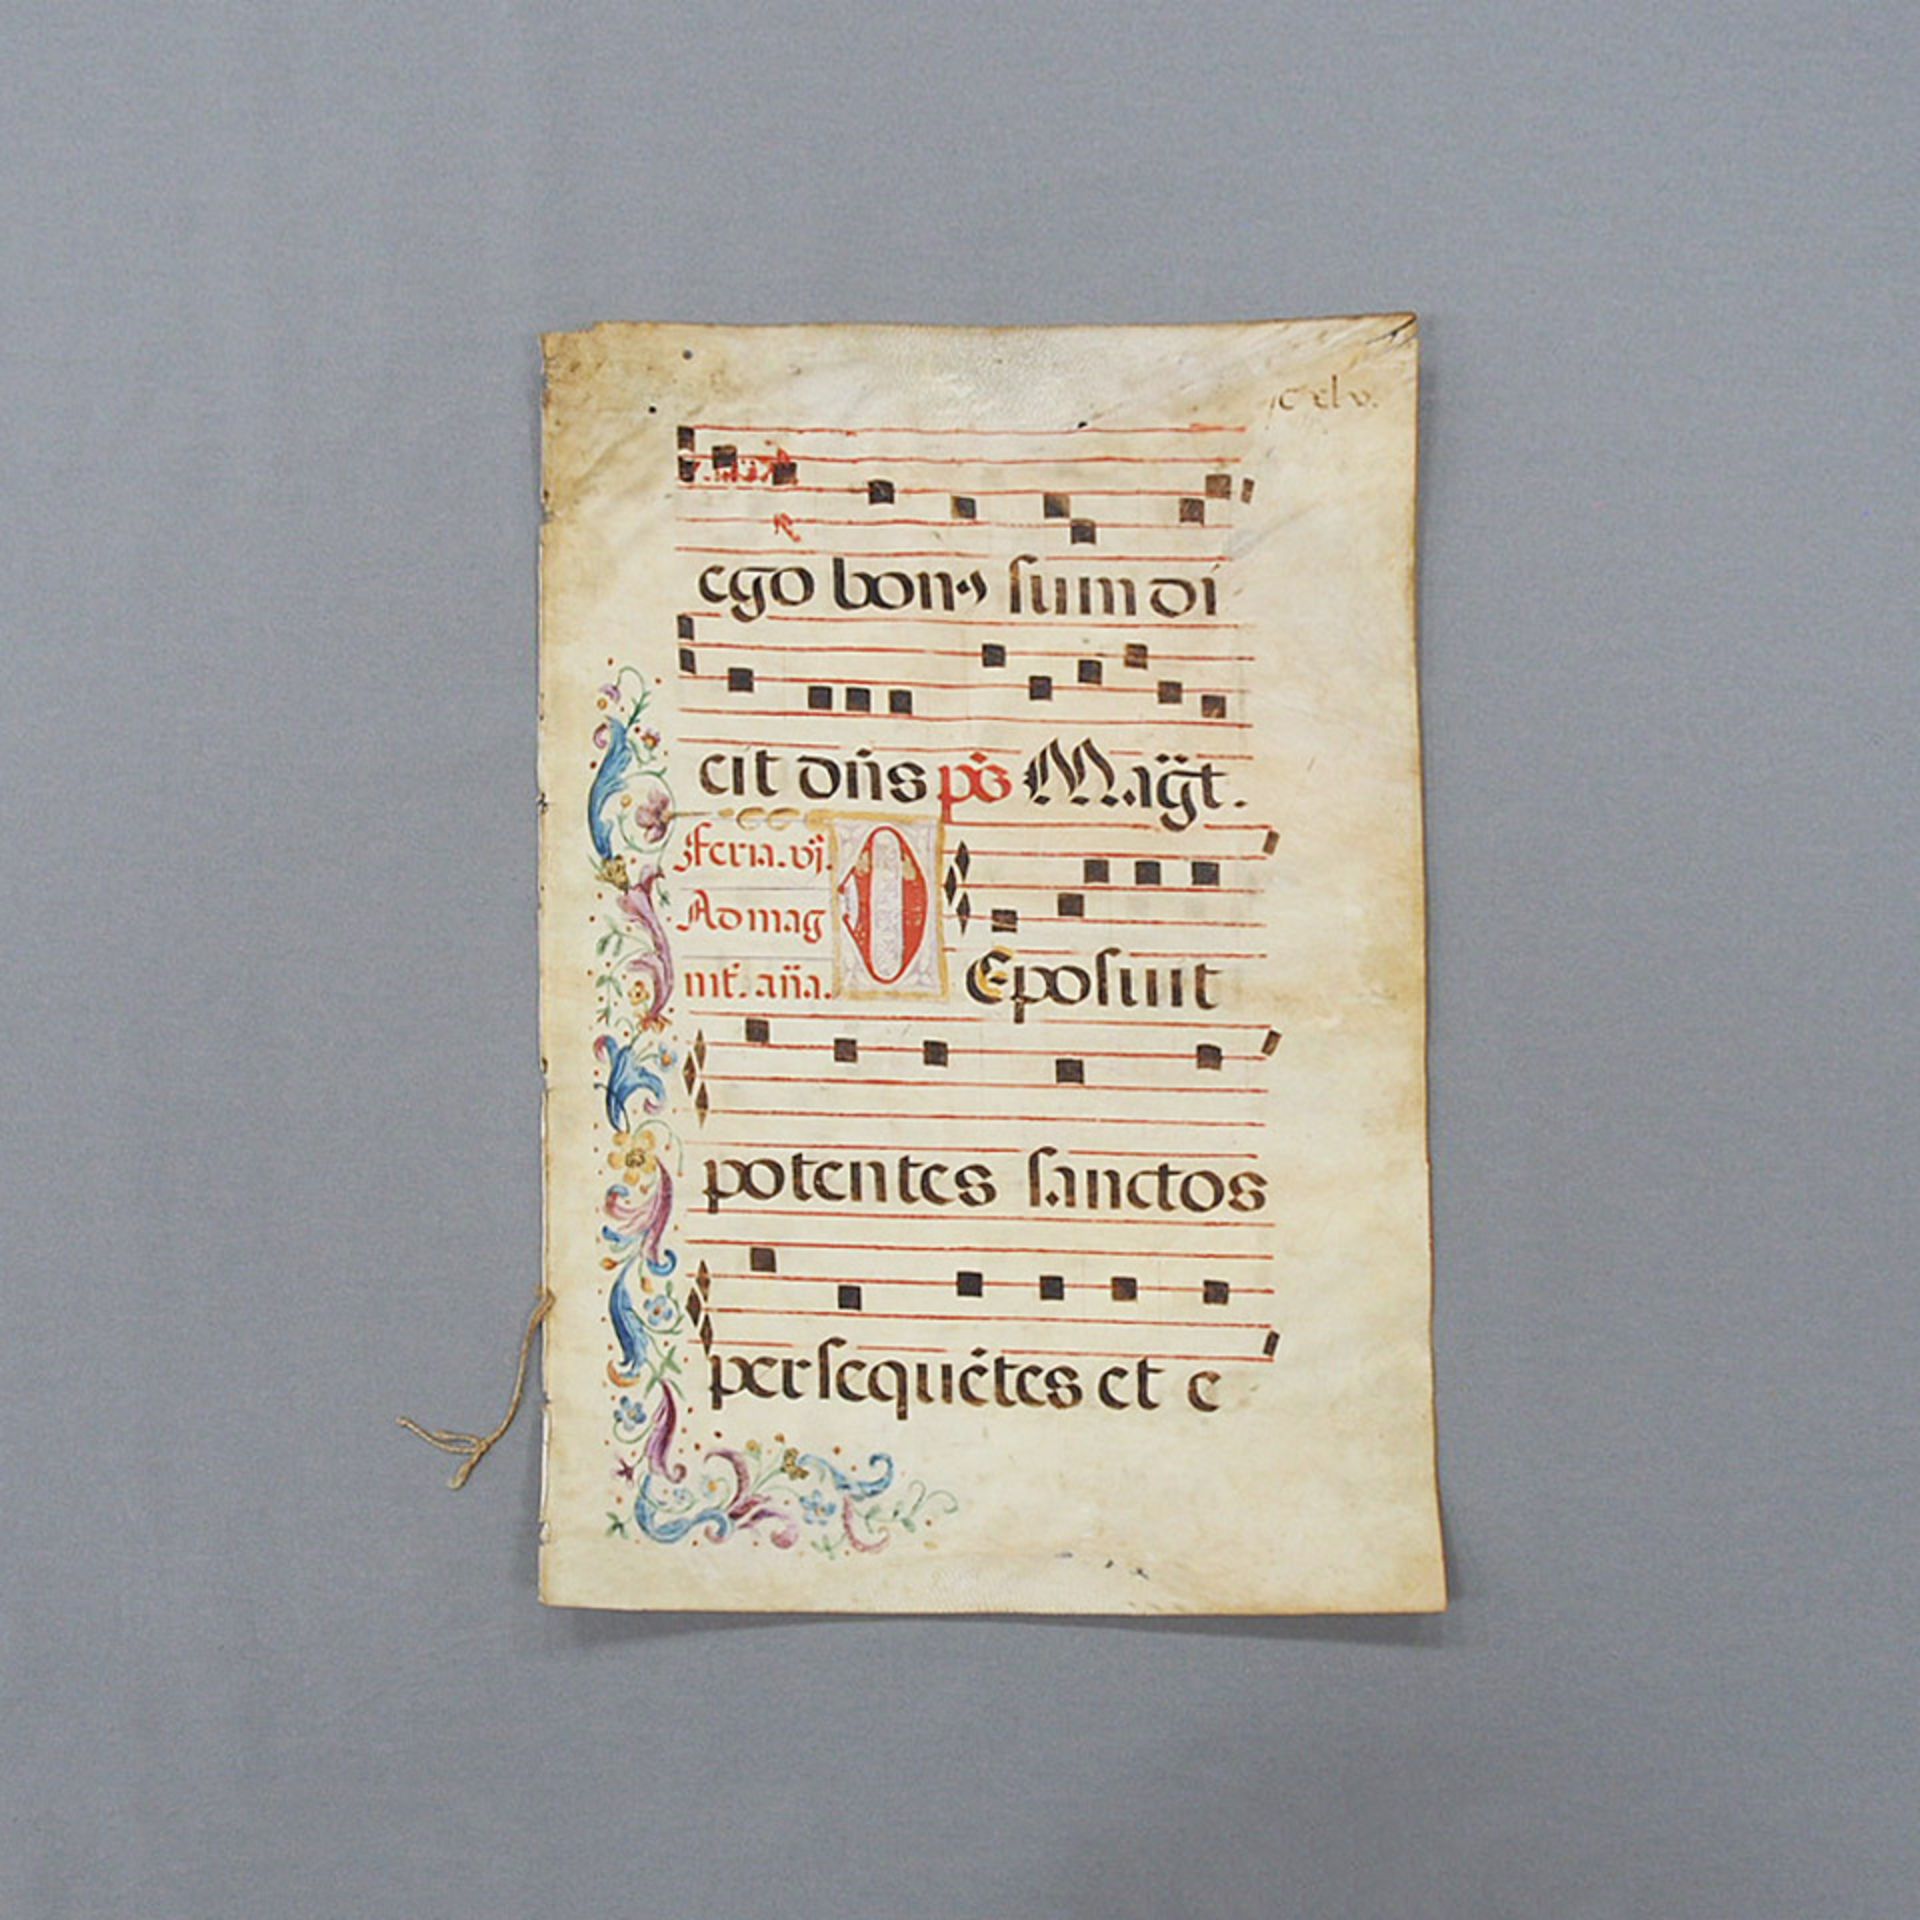 c xl v.
ego bon9 sum di
cit dn̄s ps̄ Magt̄.
Feria. vj.
Ad mag
nit̄. an̄a.
DEposuit
potentes sanctos
persequētes et e